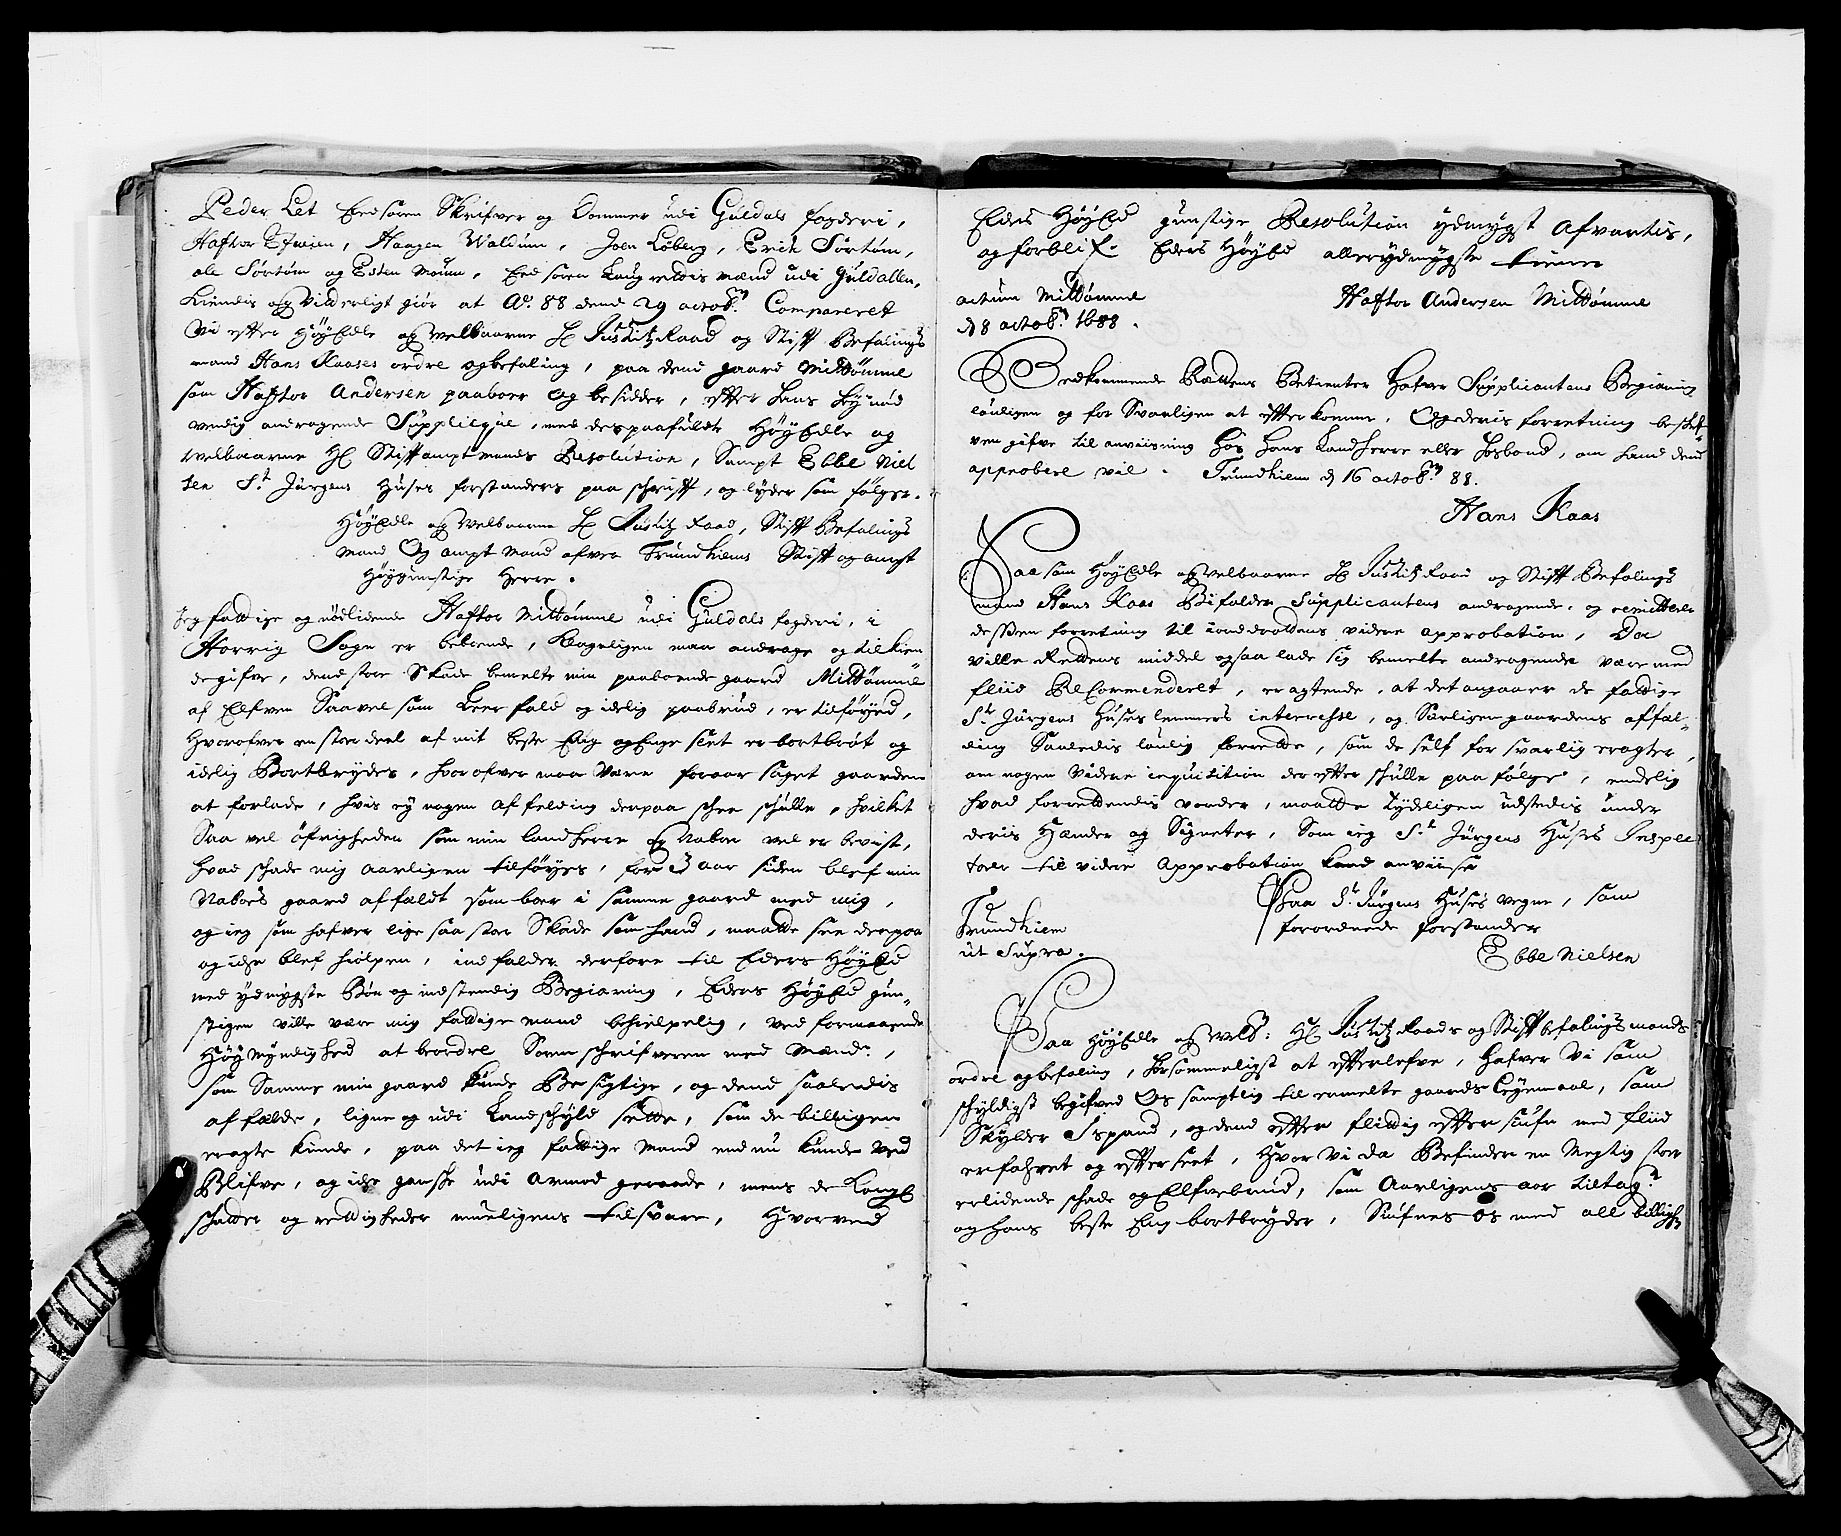 Peder Let Eedsoren Skrifver og Dommer udi Guldals fogderi,
Haftor Efwien, Haagen Waldum, Joen Løberg, Erich Sørtøm,
ole Sørtøm og Esten Moum, Eedsoren Laugrettis mænd udi Guldallen,
Kiendis og vitterligt giør at Ao. 88 dend 29 octobr. Compareret
Vi efter HøyEdle og velbaarne H Justitz Raad og Stift Befalings
mand Hans Kaases ordre og befaling, paa dend gaard Mittømme
som Haftor Andersen paaboer og besidder, efter hans høynød
vendig andragende Suppliqve, med des paafuldte HøyEdle og
velbaarne Hr Stiftamptmands Resolution, Sampt Ebbe Niel
sen St. Jürgens Huses forstanders paaschrifft, og lyder som følger.
HøyEdle og velbaarne H Justitz Raad, Stift Befalings
Mand Og amptmand ofver Trundhiems Stift og ampt
Høygunstige Herre.
Jeg fattige og nødlidende Haftor Mittømme udi Guldals fogderi, i
Horrig Sogn er boboende, klageligen maa andrage og tilkien
degifve, dend store Skade bemelte min paaboende gaard Mittømme
af Elfven Saavel som Leerfald og idelig paabrud, er tilføyed,
Hvorofver en stoer deel af mit beste Eng og Engeslet er bortbrøt og
idelig Bortbrydes, hvorofver maa være foraarsaget gaarden
at forlade, hvis ey nogen affelding derpaa schee schulle, hvilket
Saa vel øfrigheden som min landherre og Naboe vel er bevist,
hvad schade mig aarligen tilføyes, for 3 aar siden blef min
Naboes gaard affeldt som boer i samme gaard med mig,
og ieg som hafver lige saa stor Skade som hand, maatte see derpaa
og iche blef hiolpen, indfalder derfore til Eders HøyEd
med ydmygste Bøn og indstendig Begiæring, Eders HøyEd gun-
stigen ville være mig fattige mand behielpelig, ved formaaende
Høy Myndighed at beordre Sorenschrifveren med Mænd,
som Samme min gaard kunde Besigtige, og dend saaledis
affelde, ligne og udi Landschyld sette, som de billigen
eragte kunde, paa det ieg fattige Mand endnu kunde ved
Blifve, og iche gansche udi Armod geraade, mens de Kongl
schatter og rettigheder mueligens tilsvare, Hvorved
Eders HøyEd gunstige Resolution ydmygst Afvartis,
og forblifr. Eders HøyEd allerydmygste tiener
actum Mittømme
d 8 octobr. 1688.
Haftor Andersen Mittømme
Vedkommende Rættens Betienter hafver Supplicantens Begiæring
louligen og forsvarligen at efterkomme, Og deris forretning beschre-
ven gifve til anviisning hos hans Landherre eller hosbond, om hand dend
approbere vil. Trundhiem d 16 octobr. 88.
Hans Kaas
Saasom HøyEdle og velbaarne H Justitz Raad og Stift Befalings
mand Hans Kaas Bifalder Supplicantens andragende, og remitterer
dessen forretning til landdrottens videre approbation, Da
ville Rettens middel ogsaa lade sig bemelte andragende være med
fliid Recommenderet, eragtende, at det angaaer de fattige
St. Jürgens Huses lemmers interresse, og Særligen gaardens affæl-
ding Saaledis loulig forrette, som de self forsvarlig eragter,
om nogen videre inquisition der efter schulle paafølge, endelig
hvad forrettendis vorder, maatte tydeligen udstedis under
deris Hænder og Signeter, Som ieg St. Jürgens Huses Inspec
toer til videre Approbation kand anviise
Trundhiem
ut Supra.
Paa St. Jürgens Huses vegne, som
forordnede forstander
Ebbe Nielsen
Paa HøyEdle og velb: Hr Justitz Raads og Stiftbefalingsmands
ordre og befaling, hørsommeligst at efterlefve, hafver Vi som
schyldigst begifved Os samptlig til ermelte gaards Leyemaal, som
Skylder 1 spand, og dend efter flittig eftersiufn med fliid
erfahret og efterseet, Hvor vi da Befinder en Megtig stor
erlidende schade og Elfvebrud, som Aarligens aar tiltagr.
og hans beste Eng bortbryder, Siufnes os med all billigh